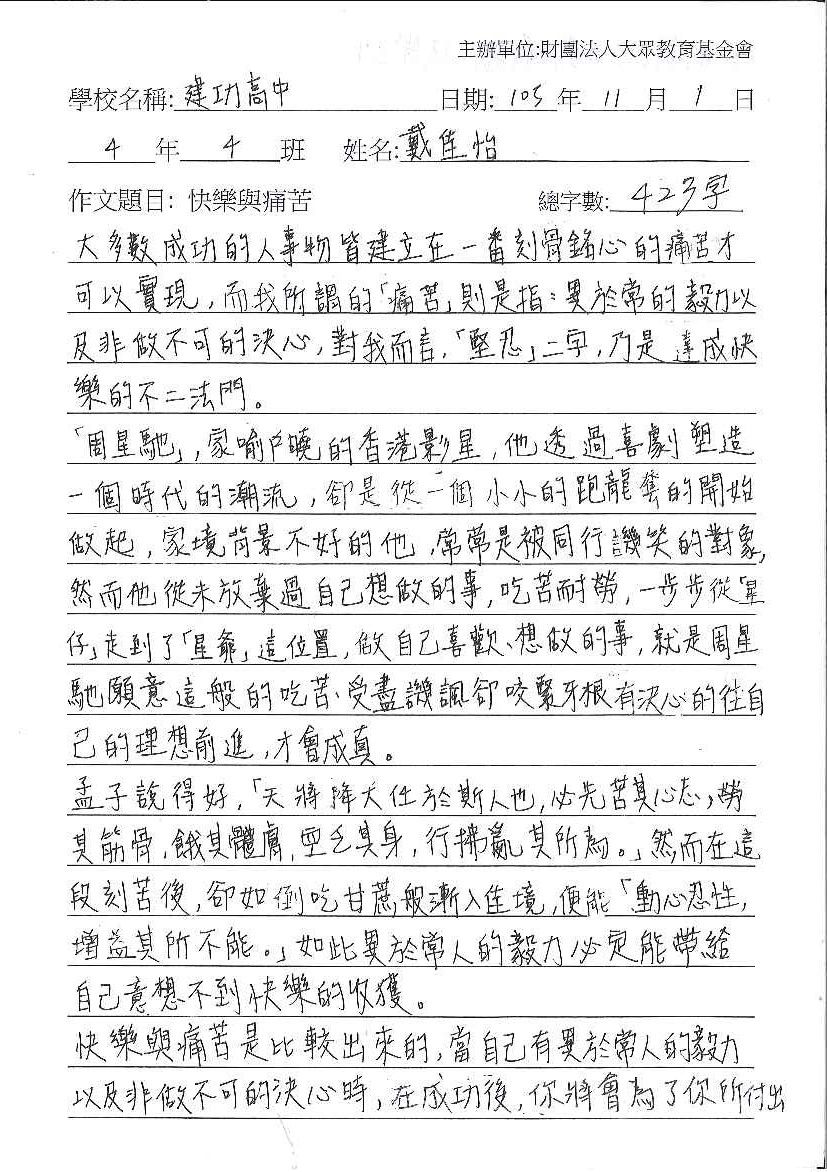 主辦單位:財團法人大眾教育基金會
學校名稱: 建功高中 日期: 105 年 11 月 1 日
4 年 4 班 姓名: 戴佳怡
作文題目: 快樂與痛苦 總字數: 423字
大多數成功的人事物皆建立在一番刻骨銘心的痛苦才
可以實現，而我所謂的「痛苦」則是指：異於常的毅力以
及非做不可的決心，對我而言，「堅忍」二字，乃是達成快
樂的不二法門。
「周星馳」，家喻戶曉的香港影星，他透過喜劇塑造
一個時代的潮流，卻是從一個小小的跑龍套的開始
做起，家境背景不好的他，常常是被同行譏笑的對象，
然而他從未放棄過自己想做的事，吃苦耐勞，一步步從「星
仔」走到了「星爺」這位置，做自己喜歡、想做的事，就是周星
馳願意這般的吃苦、受盡譏諷卻咬緊牙根有決心的往自
己的理想前進，才會成真。
孟子說得好，「天將降大任於斯人也，必先苦其心志，勞
其筋骨，餓其體膚，空乏其身，行拂亂其所為。」然而在這
段刻苦後，卻如倒吃甘蔗般漸入佳境，便能「動心忍性，
增益其所不能。」如此異於常人的毅力必定能帶給
自己意想不到快樂的收獲。
快樂與痛苦是比較出來的，當自己有異於常人的毅力
以及非做不可的決心時，在成功後，你將會為了你所付出